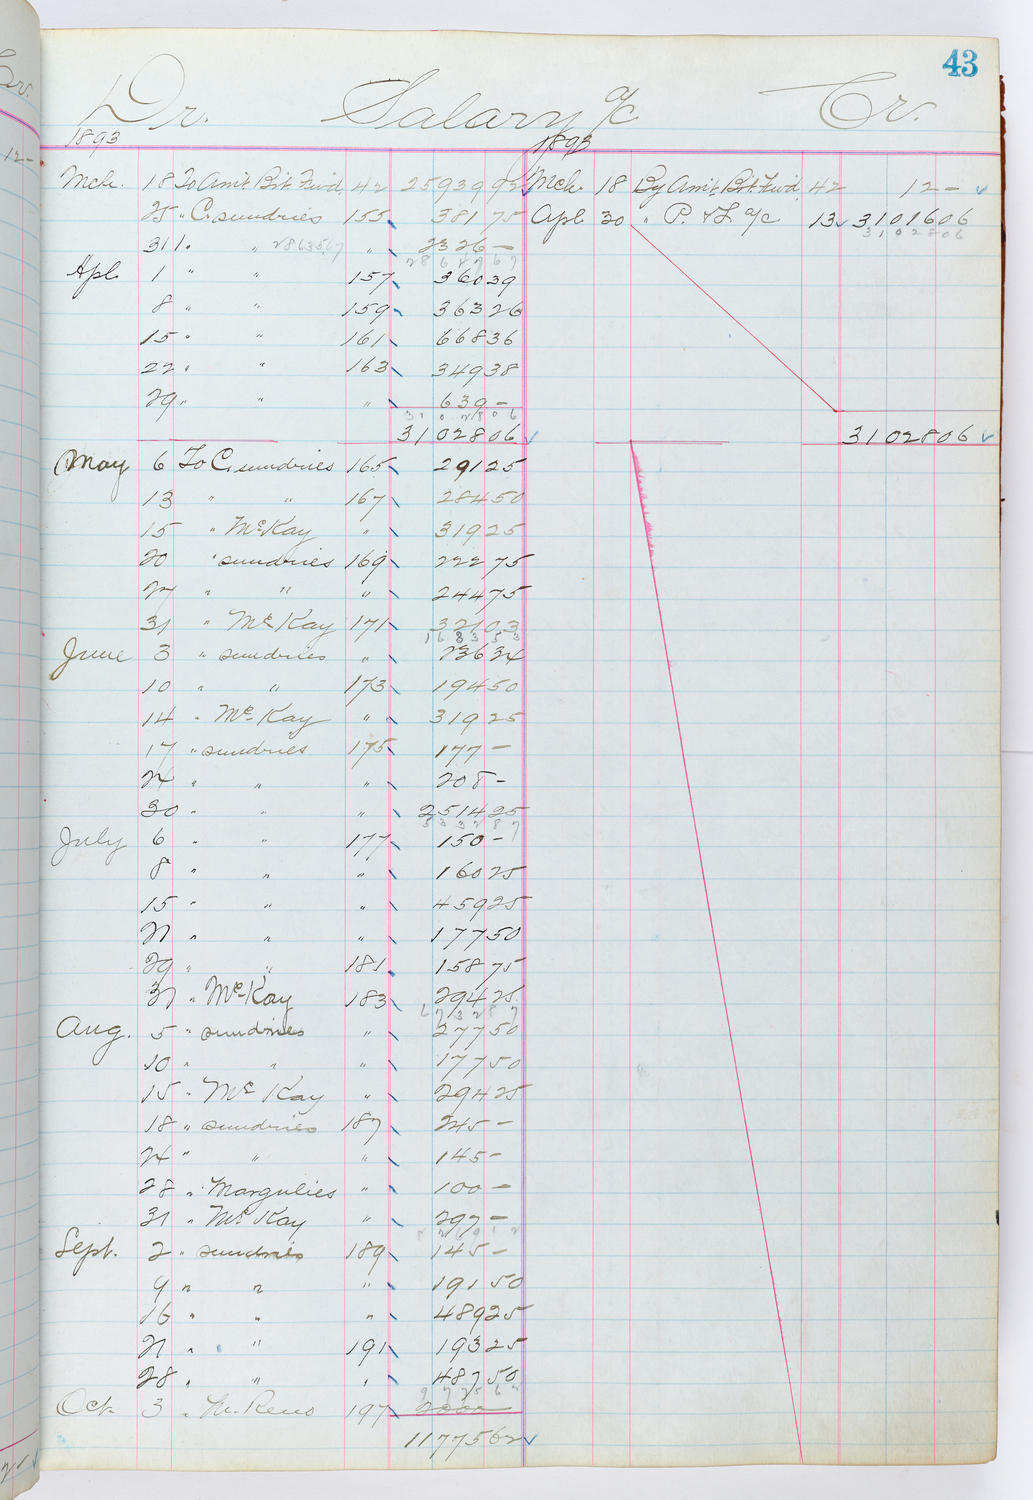 43
Dr. Salary a/c Cr.
1893 1893
Mch. 18 To Amt Brt Fwd. 42 25939 92 Mch. 18 By Amt Brt Fwd. 42 12 -
25 " C. sundries 155 381 75 Apl 30 " P. & L a/c 13 31016 06
31028 06
31 " " 28635.67 " 2326 -
28647 67
Apl. 1 " " 157 360 39
8 " " 159 363 26
15 " " 161 668 36
22 " " 163 349 38
29 " " " 639 -
31028 06
31028 06 31028 06
May 6 To C. sundries 165 291 25
13 " " 167 284 50
15 " McKay " 319 25
20 " sundries 169 222 75
27 " " " 244 75
31 " McKay 171 321 03
1683 53
June 3 " sundries " 236 34
10 " " 173 194 50
14 " McKay " 319 25
17 " sundries 175 177 -
24 " " " 208 -
30 " " " 2514 25
5332 87
July 6 " " 177 150 -
8 " " " 160 25
15 " " " 459 25
21 " " " 177 50
29 " " 181 158 75
31 " McKay 183 294 25
6732 87
Aug. 5 " sundries " 277 50
10 " " " 177 50
15 " McKay " 294 25
18 " sundries 187 245 -
24 " " " 145 -
28 " Margulies " 100 -
31 " McKay " 297 -
Sept. 2 " sundries 189 145 -
9 " " " 191 50
16 " " " 489 25
21 " " 191 193 25
28 " " " 487 50
9775 62
Oct 3 " Reno 197 2000
11775 62